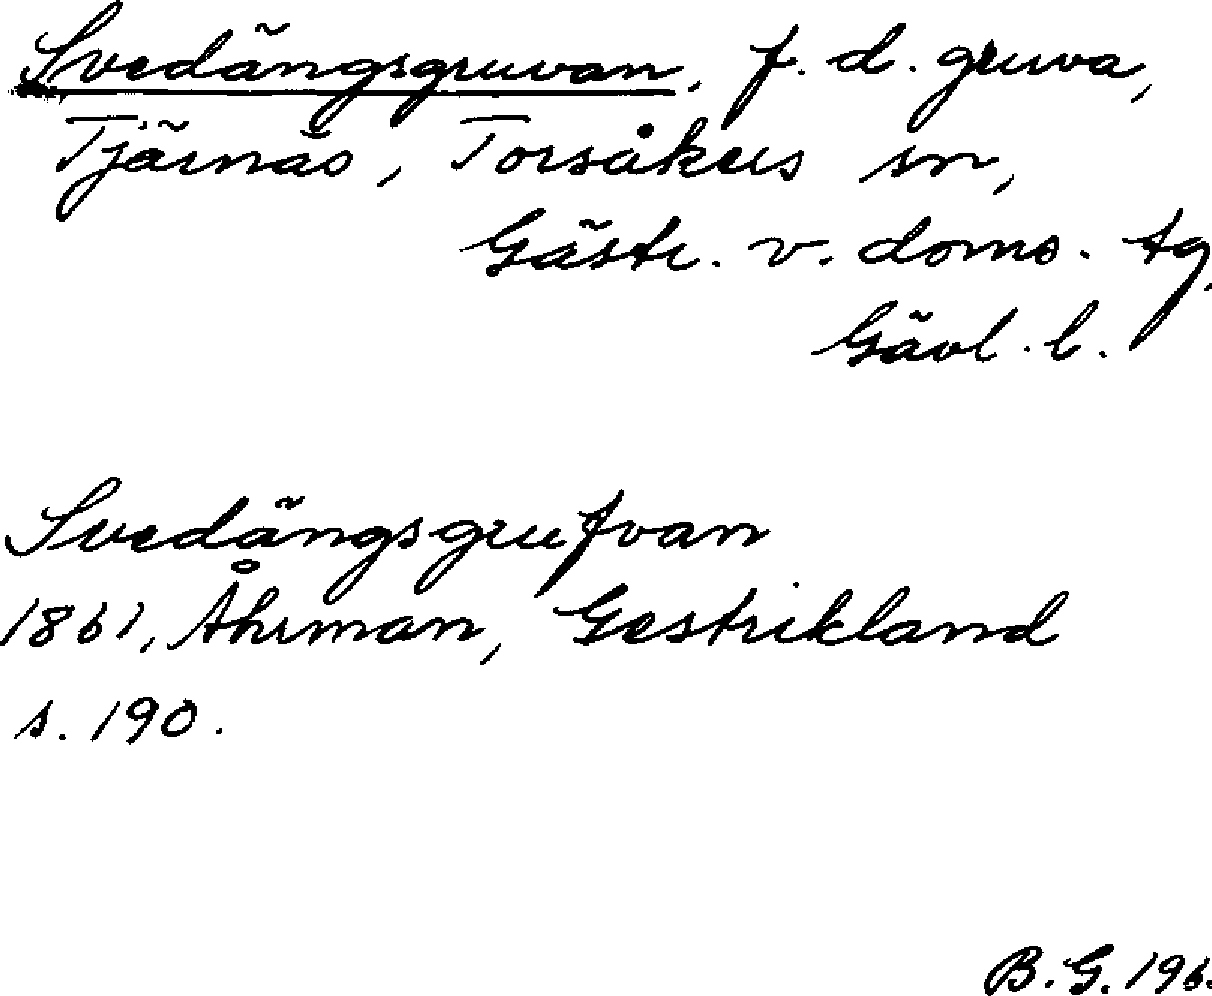 Svedängsgruvan, f. d. gruva,
Tjärnäs, Torsåkers sn,
Gästr. v. doms. tg,
Gävl. l.
Svedängsgrufvan
1861, Åhrman, Gestrikland
s. 190.
B. G. 196.